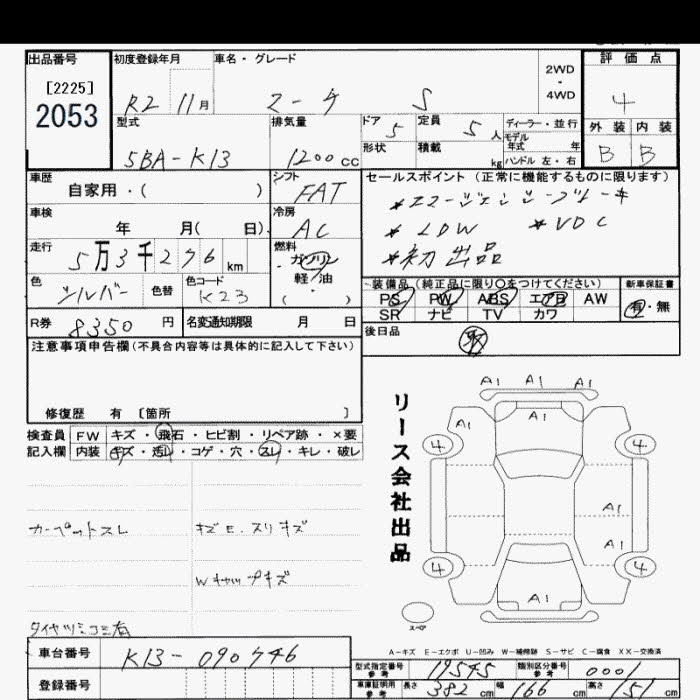 出品番号 初度登録年月 車名・グレード 2WD・4WD 評価点
[2225]
2053
R2 11月 マーチ S 4
型式 排気量 ドア 5 定員 5人 ディーラー・並行 外装 内装
モデル年式 年
5BA-K13 1200cc 形状 積載 kg ハンドル 左・右 B B
車歴 シフト セールスポイント（正常に機能するものに限ります）
自家用・( ) FAT *エマージェンシーブレーキ
車検 冷房 *LDW *VDC
年 月( 日). AC *初出品
走行 燃料
5万3千276km ガソリン
軽・油
( )
色 色替 色コード 装備品（純正品に限り○をつけてください） 新車保証書
シルバー K23 PS PW ABS エアB AW 有・無
SR ナビ TV カワ
R券 8350円 名変通知期限 月 日 後日品
注意事項申告欄（不具合内容等は具体的に記入して下さい）
修復歴 有 〔箇所 〕
検査員 FW キズ・飛石・ヒビ割・リペア跡・×要
記入欄 内装 キズ・汚レ・コゲ・穴・スレ・キレ・破レ
リース会社出品
A1 A1 A1
A1 A1
4 4
A1
A1
4 4
A1
スペア
カーペットスレ キズE.スリキズ
Wキャップキズ
タイヤツミコミ有
A－キズ E－エクボ U－凹み W－補修跡 S－サビ C－腐食 XX－交換済
車台番号 K13-090746
型式指定番号 参考 19545 類別区分番号 参考 0001
登録番号
車庫証明用 参考 長さ 382cm 幅 166cm 高さ 151cm